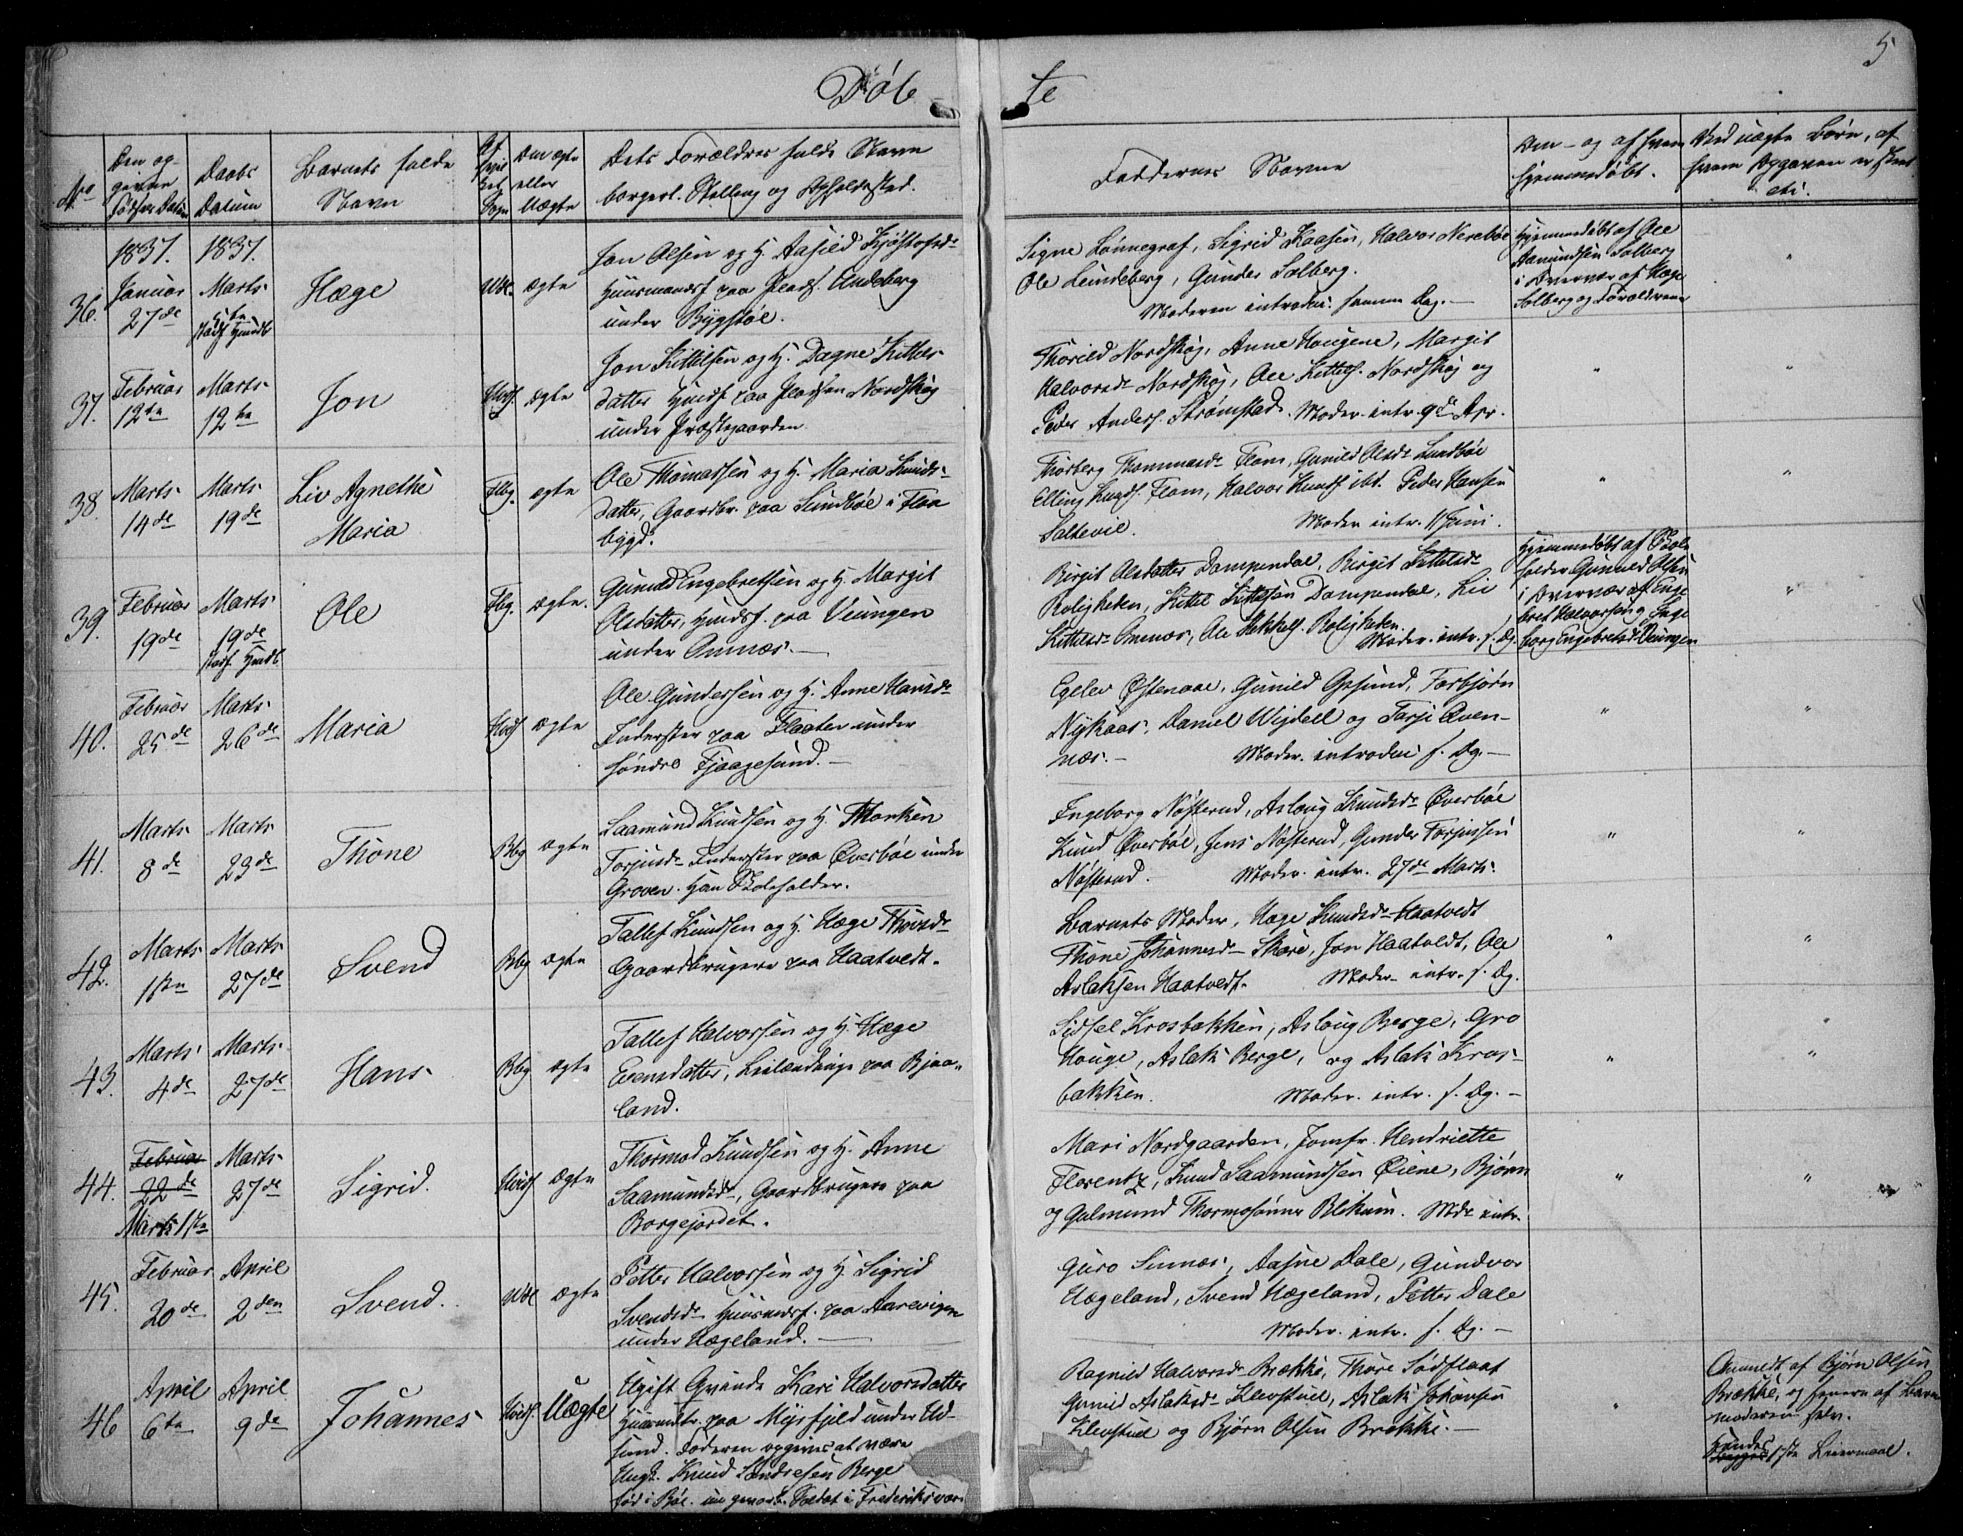 5
Døb te
No
Den opgivne Fødsels Datum
Daabs Datum
Barnets fulde Navn
Den ægte eller Uægte
Dets Forældres fulde Navn
borgerl. Stilling og Opholdssted.
Faddernes Navne
Om- og af hvem
hjemmedøbt.
Ved uægte Børn, af
hvem Opgaven er skeet
etc.
36.
1837.
Januar
27de
1837.
Marts
5te
stadf. Hjmdb
Hæge
Wdl.
ægte
Jon Olsen og H. Aasild Kjøstolsdr
Huusmandsf. paa Plads. Lundeberg
under Bygstøl.
Signe Lønnegraf, Sigrid Kaasen, Halvor Nerebøe
Ole Lundeberg, Gunder Solberg.
Moderen introdu. samme Dag.
Hjemmedøbt af Ole
Aamundsen Solberg
i Overvær af Hæge
Solberg og Forældrene
"
37.
Februar
12te
Marts
12te
Jon
Hvids.
ægte
Jon Kittilsen og H. Dagne Kittels-
datter Hmdsf. paa Pladsen Nordskog
under Præstegaarden
Thorild Nordskog, Anne Haugene, Margit
Halvorsdr Nordskog, Ole Kittels. Nordskog og
Peder Anders. Strømstad. Moder. intr. 9de Apr.
"
"
38.
Marts
14de
Marts
19de
Liv Agnethe
Maria
Flbg.
ægte
Ole Thomassen og H. Maria Knuds-
datter, Gaardbr. paa Lundbøe i Flaa
bygd.
Thorberg Thommasdr Flom, Gunild Olsdr Lundbøe
Elling Knuds. Flom, Halvor Knuds. ibd. Peder Hansen
Saltevil.
Moder intr. 11 Juni.
"
"
39.
Februar
19de
Marts
19de
stadf. Hjmdb.
Ole
Flbg.
ægte.
Gunuld Engebretsen og H. Margit
Olesdatter, Hmdsf. paa Veungen
under Omnæs.
Birgit Olesdatter Dampendal, Birgit Kittelsdr
Roligheden, Kittel Kittelsen Dampendal, Liv
Kittelsdr Omnæs, Ole Hekkels. Roligheden.
Moder. intr. s. Dg.
Hjemmedøbt af Skole
holder Gunuld Olsen
i Overvær af Enge
bret Halvorsen og Inge
borg Engebretsd. Veungen
"
40.
Februar
25de
Marts
26de
Maria
Hvids
ægte
Ole Gundersen og H. Anne Hansdr
Inderster paa Flaaten under
søndre Fjaagesund.
Egelev Østenaae, Gunild Opsund, Torbjørn
Nykaas, Daniel Wigdell og Tarje Qven-
næs.
Moder. introducn s. Dg.
"
"
41.
Marts
8de
Marts
23de
Thone
Bbg
ægte
Saamund Knudsen og H. Thonken
Torjusdr Inderster paa Øverbøe under
Groven. Han Skoleholder.
Ingeborg Nøsterud, Asloug Knudsdr Øverbøe
Knud Øverbøe, Jens Nøsterud, Gunder Torjussen
Nøsterud.
Moder. intr. 27de Marts.
"
"
42.
Marts
1ste
Marts
27de
Svend
Bbg
ægte
Tallef Knudsen og H. Hæge Thorsdr
Gaardbrugere paa Haatvedt.
Barnets Moder, Hæge Knudsdr Haatvedt
Thone Johannesdr Skare, Jon Haatvedt, Ole
Aslaksen Haatvedt.
Moder. intr. s. Dg.
"
"
43.
Marts
4de
Marts
27de
Hans
Bbg
ægte
Tallef Halvorsen og H. Hæge
Evensdatter, Leilændinge paa Bjaa-
land.
Sidsel Krosbakken, Asloug Berge, Gro
Houge, Aslak Berge, og Aslak Kros-
bakken.
Moder. intr. s. Dg.
"
"
44.
Februar
22de
Marts 1ste
Marts
27de
Sigrid.
Hvids
ægte
Thormod Knudsen og H. Anne
Saamundsdr, Gaardbrugere paa
Borgejordet.
Mari Nordgaarden, Jomfr. Hendriette
Florentz, Knud Saamundsen Øiene, Bjørn
og Galmund Thormosønner Blekum. Mdr intr.
"
"
45.
Februar
20de
April
2den
Svend.
Wdl
ægte
Petter Halvorsen og H. Sigrid
Svendsdr Huusmandsf. paa Aarevigen
under Hægeland.
Guro Sinnæs, Aasne Dale, Gundvor
Hægeland, Svend Hægeland, Petter Dale
Moder. intr. s. Dg.
46
April
6te
April
9de
Johannes
Hvids.
Uægte
Ugift Qvinde Kari Halvorsdatter
Huusmdr. paa Myrfjeld under Ud-
sund. Faderen opgives at være
Ungk. Knud Sondresen Berge
fød i Bøe. nu gevorb. Soldat i Frederiksværn
Ragnild Halvorsdr Brække, Thore Sødflaat
Gunild Aslaksdr Klevstuel, Aslak Johansen
Klevstuel og Bjørn Olsen Brække.
"
Anmeldt af Bjørn Olsen
Brække, og senere af Barne
moderen selv.
Hendes
1ste Leiermaal.